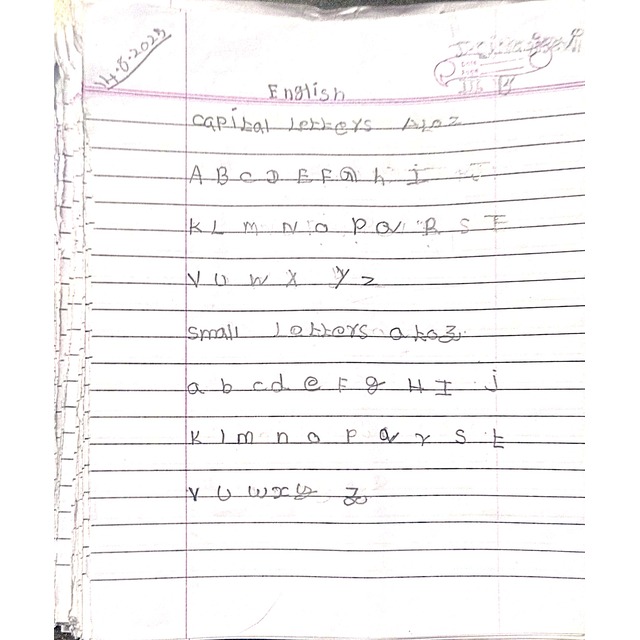 14.8.2025
English
capital letters A to Z
A B C D E F G h I J
K L m N O P Q R S T
V U W X Y Z
small letters a to z
a b c d e F g H I j
K l m n o P Q r S t
V U w x y z